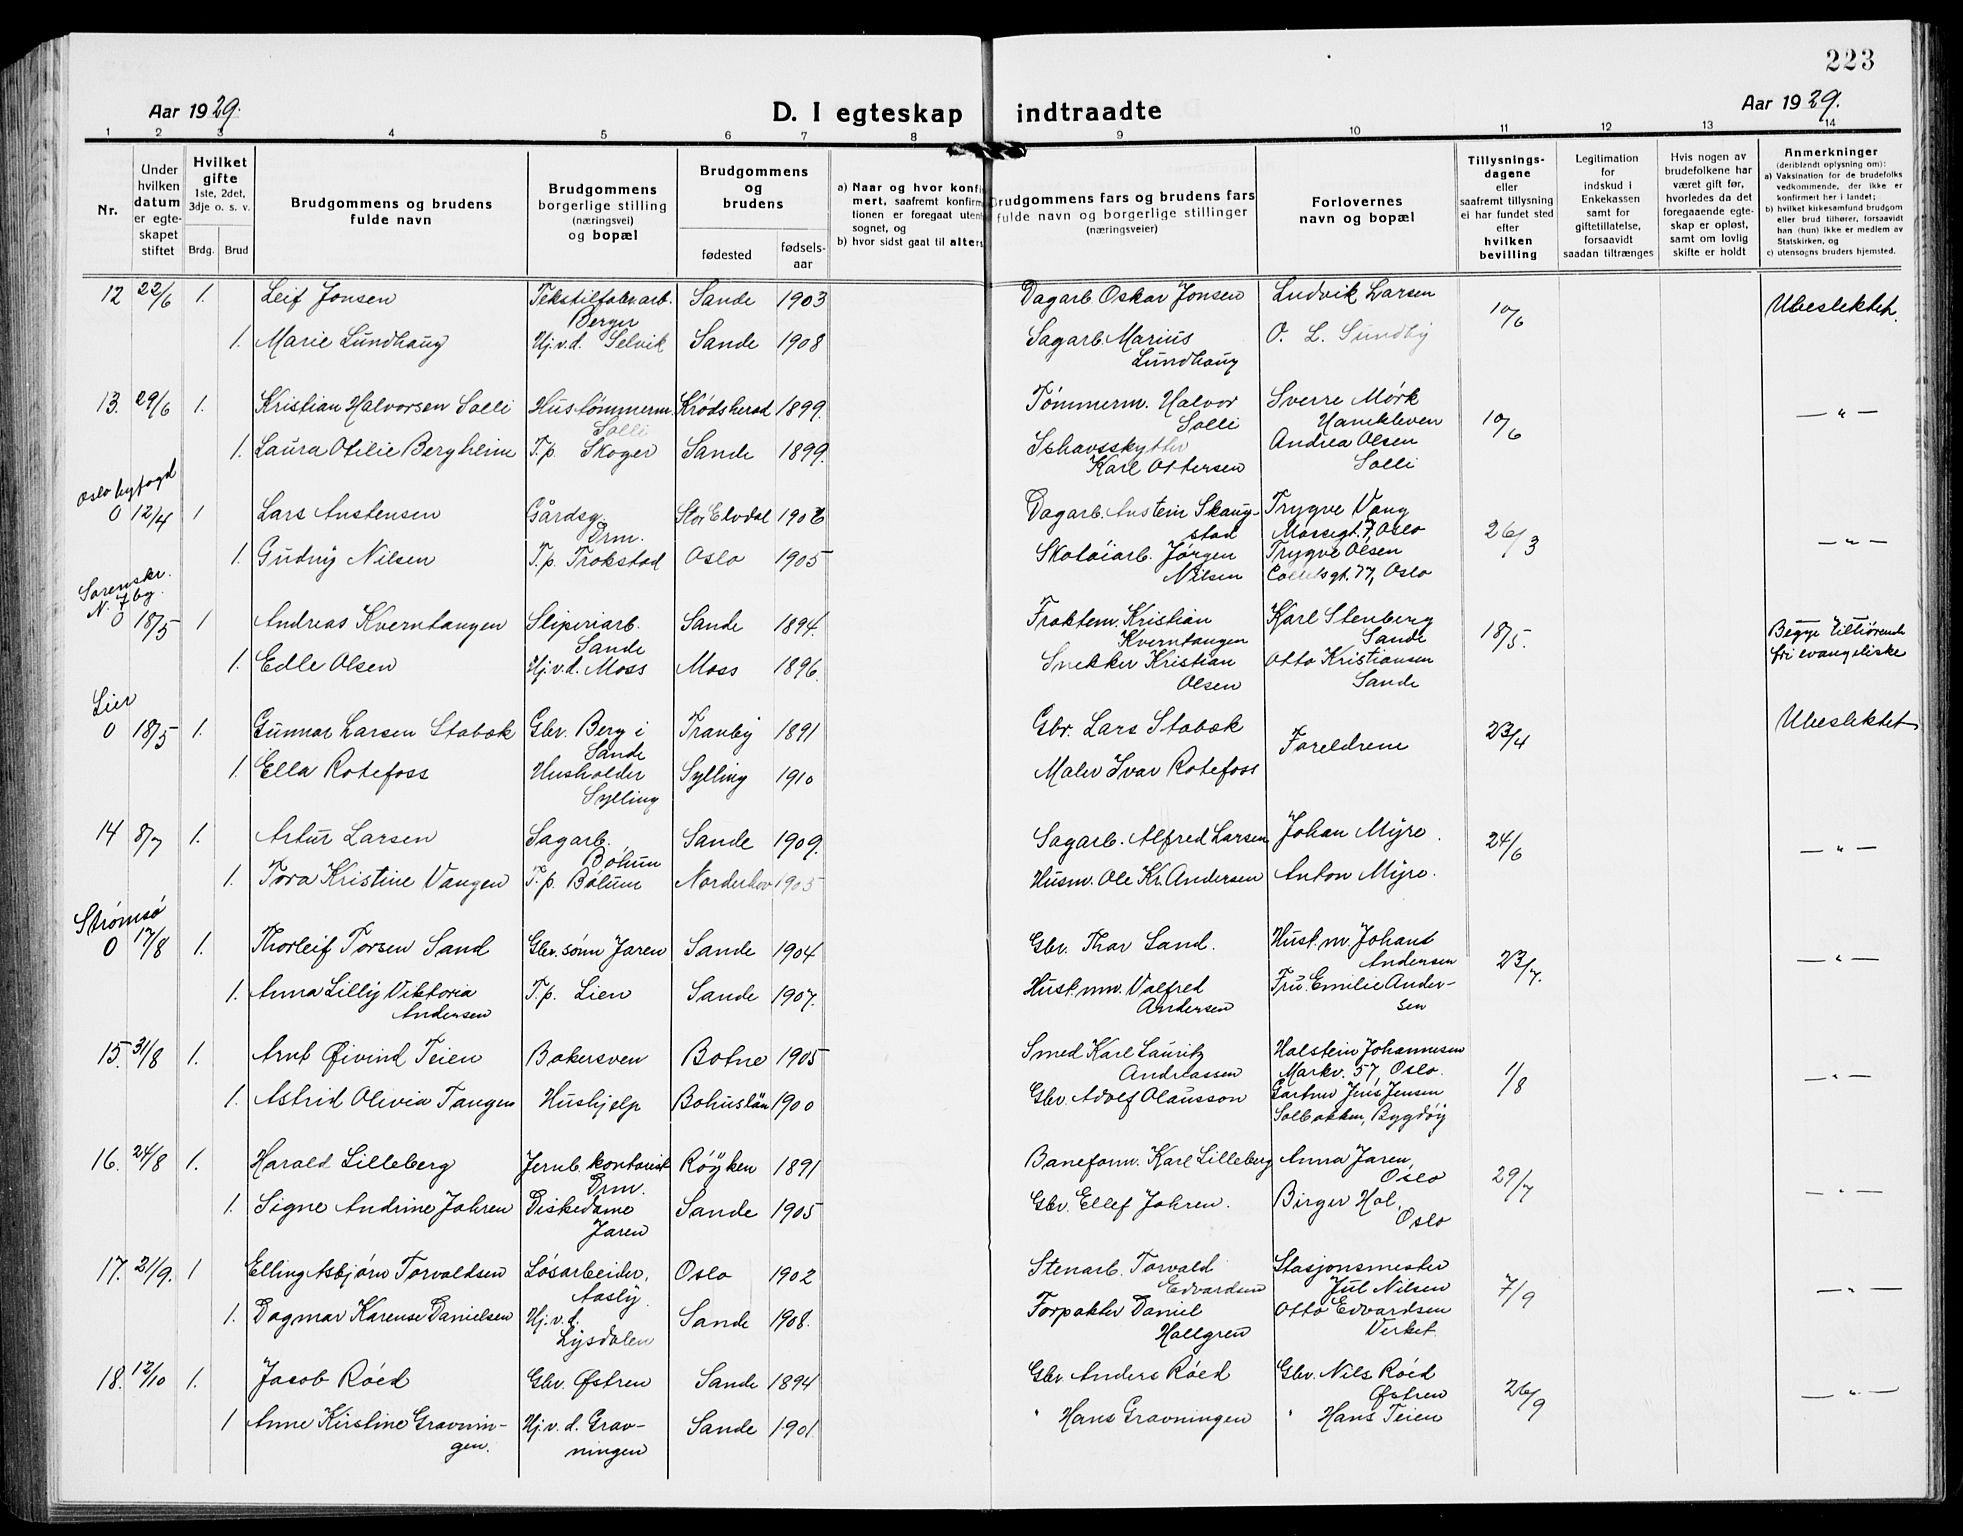 223
Aar 1929.
D. I egteskap indtraadte
Aar 1929.
1 2 3 4 5 6 7 8 9 10 11 12 13 14
Nr.
Under hvilken datum er egteskapet stiftet
Hvilket gifte
1ste, 2det, 3dje o. s. v.
Brdg. Brud
Brudgommens og brudens fulde navn
Brudgommens borgerlige stilling (næringsvei) og bopæl
Brudgommens og brudens
fødested fødsels-aar
a) Naar og hvor konfi
mert, saafremt konfirm
tionen er foregaat uten
sognet, og
b) hvor sidst gaat til alters
Brudgommens fars og brudens fars
fulde navn og borgerlige stillinger
(næringsveier)
Forlovernes
navn og bopæl
Tillysnings-
dagene
eller
saafremt tillysning
ei har fundet sted
efter
hvilken
bevilling
Legitimation
for
indskud i
Enkekassen
samt for
giftetillatelse,
forsaavidt
saadan tiltrænges
Hvis nogen av
brudefolkene har
været gift før,
hvorledes da det
foregaaende egte-
skap er opløst,
samt om lovlig
skifte er holdt
Anmerkninger
(deriblendt oplysning om):
a) Vaksination for de brudefolks
vedkommende, der ikke er
konfirmert her i landet;
b) hvilket kirkesamfund brudgom
eller brud tilhører, forsaavidt
han (hun) ikke er medlem av
Statskirken, og
c) utensogns bruders hjemsted.
12 22/6 1. Leif Jonsen Tekstilfabrarb. Berger Sande 1903 Dagarb. Oskar Jonsen Ludvik Larsen 10/6 Ubeslektet.
1. Marie Lundhaug Hj.v.d. Selvik Sande 1908 Sagarb. Marius Lundhaug O. L. Sundby
13. 29/6 1. Kristian Halvorsen Solli Hustømmerm. Solli Krødsherad 1899. Tømmerm. Halvor Solli Sverre Mørk Hanekleven 10/6 — " —
1. Laura Otilie Bergheim T.p. Skoger Sande 1899. Karl Ottersen Andrea Olsen Solli
Oslo byfogd
0 12/4 1 Lars Austensen Gårdsg. Drm. Stor Elvdal 1906 Dagarb. Austein Skaug-stad Trygve Vang Mossegt. 7, Oslo 26/3 — " —
1. Gudny Nilsen T.p. Trøkstad Oslo 1905 Skotøiarb. Jørgen Nilsen Trygve Olsen Colletsgt. 77, Oslo
Sorenskr. N. Jbg.
0 18/5 1 Andreas Kverntangen Sliperiarb. Sande Sande 1894. Fraktem. Kristian Kverntangen Karl Stenberg Sande 18/5. Begge tilhørende fri evangeliske
1. Edle Olsen Hj.v.d. Moss Moss 1896. Snekker Kristian Olsen Otto Kristiansen Sande
Lier
0 18/5 1. Gunnar Larsen Stabæk Gbr. Berg i Sande Tranby 1891 Gbr. Lars Stabæk Foreldrene 23/4 Ubeslektet
1. Ella Rotefoss Husholder Sylling Sylling 1910 Maler Ivar Rotefoss
14 8/7 1. Artur Larsen Sagarb. Bølum Sande 1909. Sagarb. Alfred Larsen Johan Myre. 24/6 — " —
1. Tora Kristine Vangen T.p. Bølum Norderhov 1905 Husm. Ole Kr. Andersen Anton Myre.
Strømsø
0 17/8 1. Thorleif Torsen Sand Gbr. sønn Jaren Sande 1904 Gbr. Thor Sand. Hust.m. Johans Andersen 23/7. — " —
1. Anna Lilly Viktoria Andersen T.p. Lien Sande 1907. Hust.mm. Valfred Andersen Fru. Emilie Ander-sen
15. 31/8 1. Arnt Øivind Teien Bakersven Botne 1905 Smed Karl Lauritz Andreassen Halstein Johannesen Markv. 57, Oslo. 1/8 — " —
1. Astrid Olivia Tangen Hushjelp Bohuslän 1900 Gbr. Adolf Olausson Gartner Jens Jensen Solbakken, Bygdøy
16. 24/8 1. Harald Lilleberg Jernb. kontorist Drm. Røyken 1891 Baneform. Karl Lilleberg Anna Jaren, Oslo 29/7 — " —
1. Signe Andrine Jahren Diskedame Jaren Sande 1905 Gbr. Ellef Jahren. Birger Hol, Oslo
17. 21/9. 1 Elling Asbjørn Torvaldsen Løsarbeider, Aasly Oslo 1902 Stenarb. Torvald Edvardsen Stasjonsmester Jul Nilsen 7/9 — " —
1. Dagmar Karense Danielsen Hj.v.d. Lysdalen Sande 1908. Forpakter Daniel Hallgren Otto Edvardsen Verket.
18. 12/10 1. Jacob Røed Gbr. Østren Sande 1894 Gbr. Anders Røed Gbr. Nils Røed Østren 26/9 — " —
1 Anne Kirstine Gravnin-gen. Hj.v.d. Grav-ningen Sande 1901. " Hans Gravningen " Hans Teien